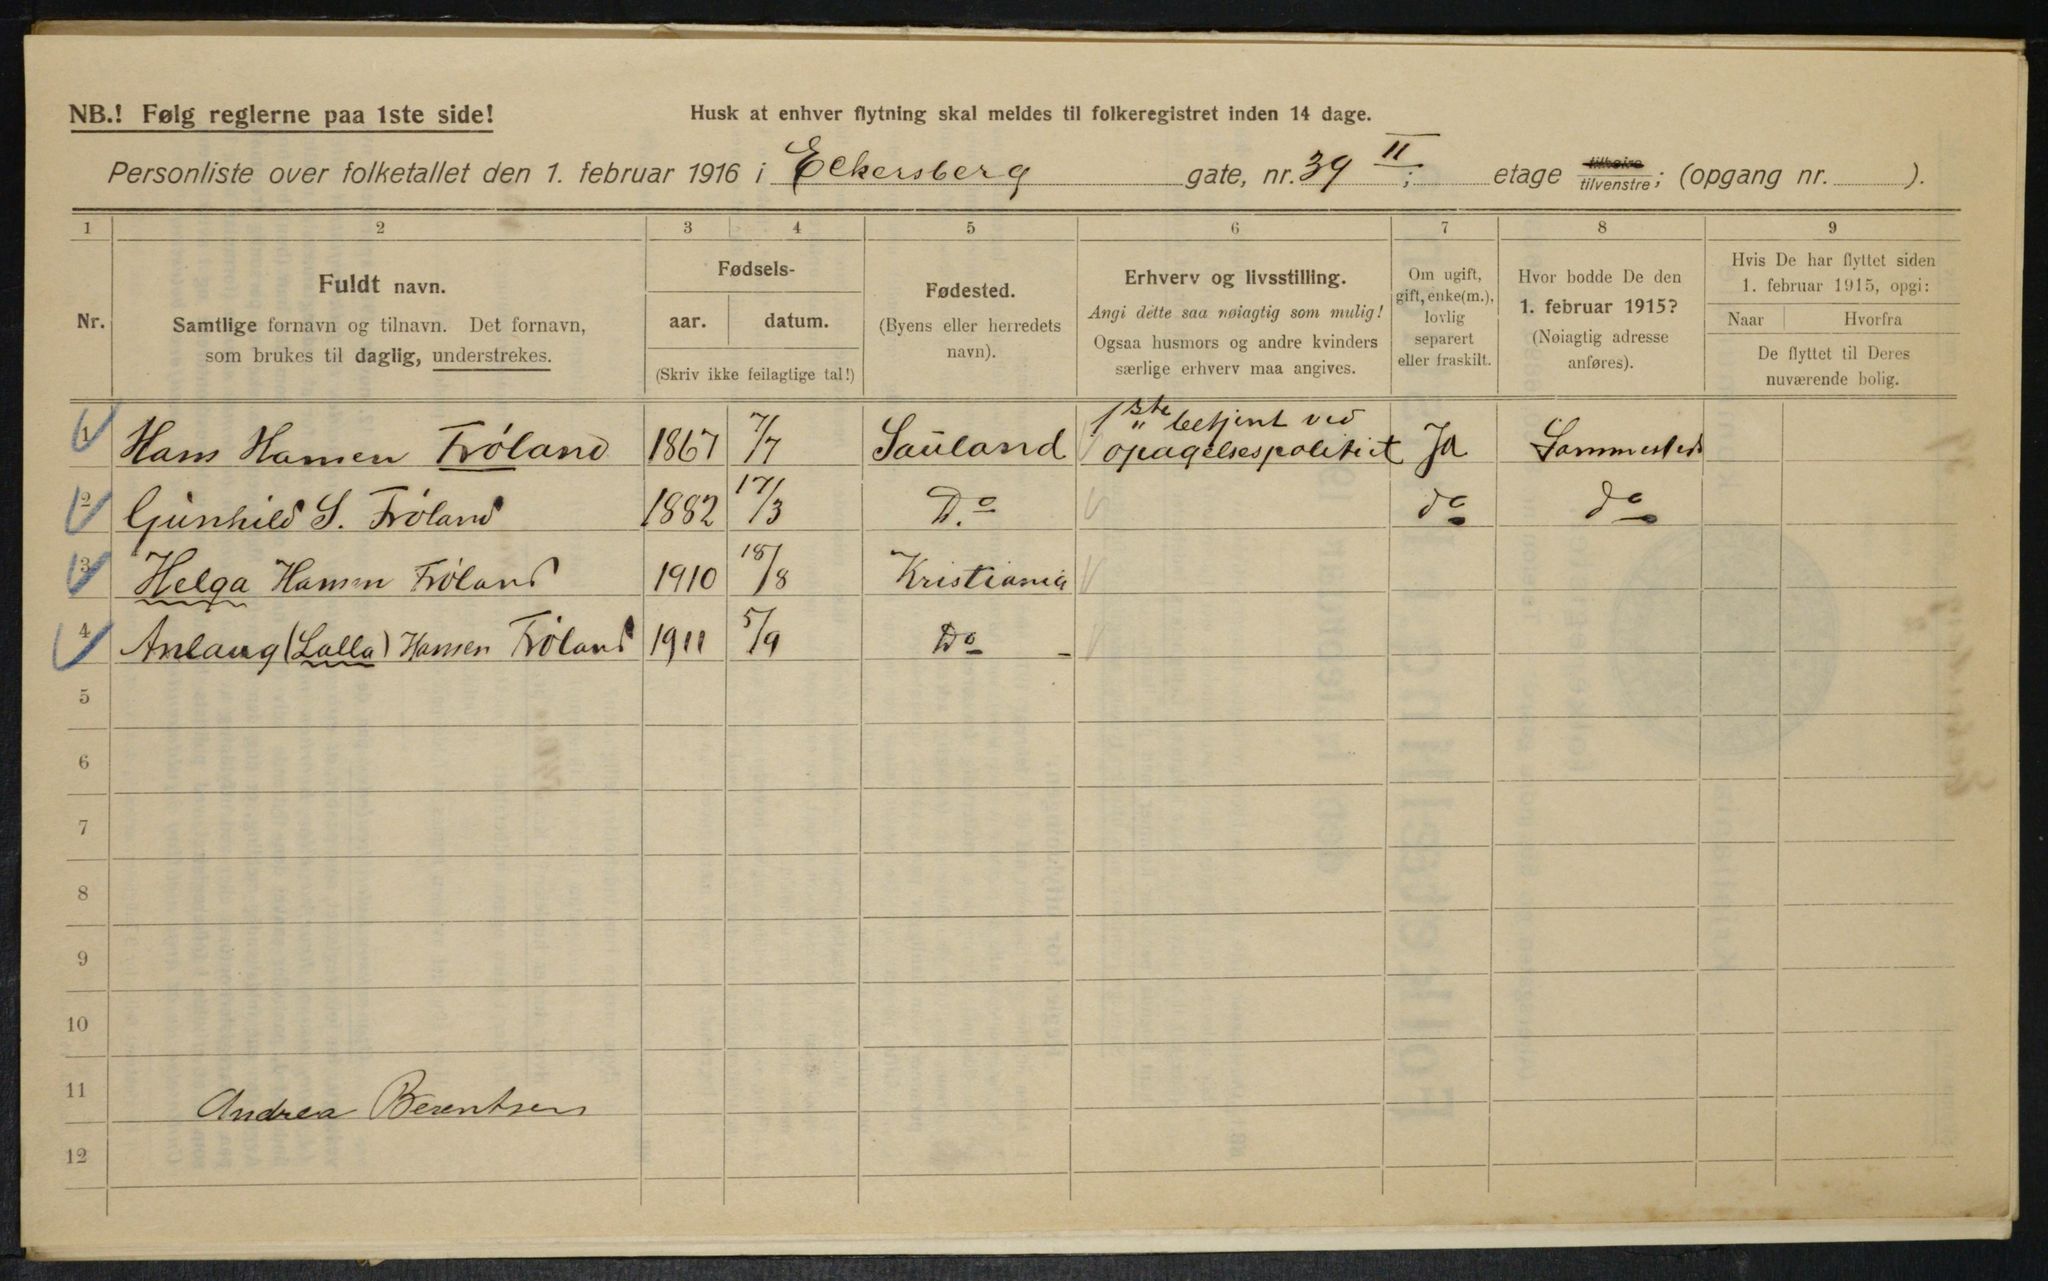 NB.! Følg reglerne paa 1ste side!
Husk at enhver flytning skal meldes til folkeregistret inden 14 dage.
Personliste over folketallet den 1. februar 1916 i Eckersberg gate, nr. 39 II; etage tilhøire tilvenstre; (opgang nr. ).
1 2 3 4 5 6 7 8 9
Nr.
Fuldt navn.
Samtlige fornavn og tilnavn. Det fornavn,
som brukes til daglig, understrekes.
Fødsels-
aar. datum.
(Skriv ikke feilagtige tal!)
Fødested.
(Byens eller herredets
navn).
Erhverv og livsstilling.
Angi dette saa nøiagtig som mulig!
Ogsaa husmors og andre kvinders
særlige erhverv maa angives.
Om ugift,
gift, enke(m.),
lovlig
separert
eller fraskilt.
Hvor bodde De den
1. februar 1915?
(Nøiagtig adresse
anføres).
Hvis De har flyttet siden
1. februar 1915, opgi:
Naar Hvorfra
De flyttet til Deres
nuværende bolig.
1 Hans Hansen Frøland 1867 7/7 Sauland 1ste betjent ved
opagelsespolitiet Ja Sammesteds
2 Gunhild S. Frøland 1882 17/3 Do do do
3 Helga Hansen Frøland 1910 18/8 Kristiania
4 Anlaug (Lalla) Hansen Frøland 1911 5/9 Do -
5
6
7
8
9
10
11 Andrea Berentsen
12